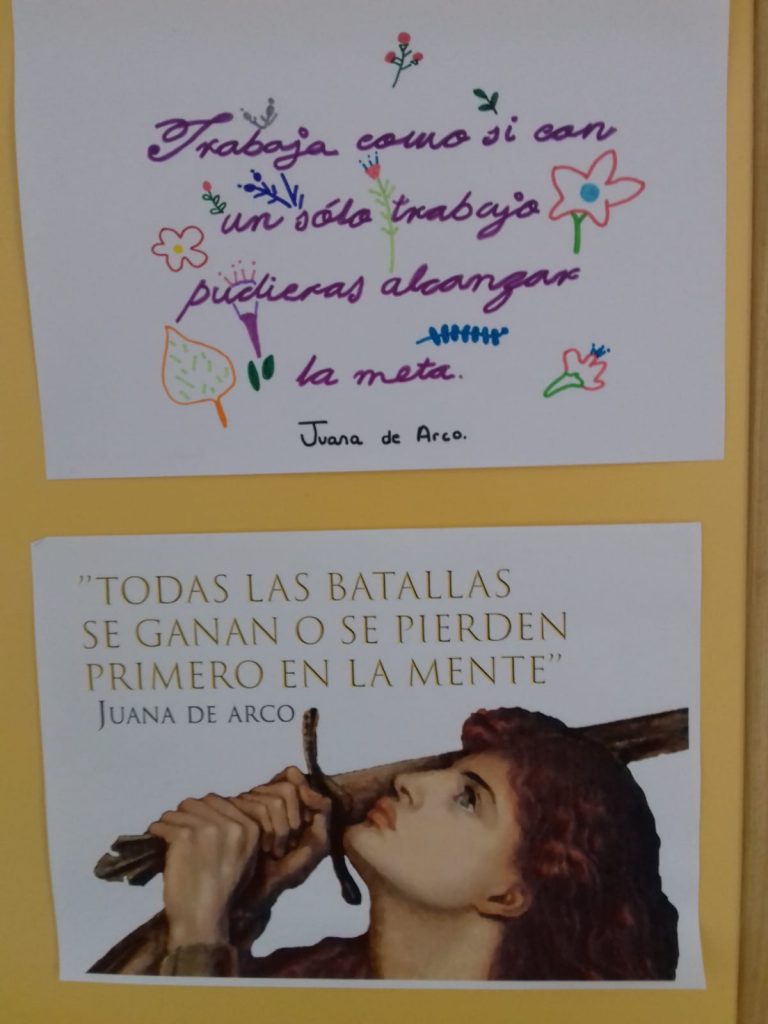 Trabaja como si con
un sólo trabajo
pudieras alcanzar
la meta.
Juana de Arco.
"TODAS LAS BATALLAS
SE GANAN O SE PIERDEN
PRIMERO EN LA MENTE"
JUANA DE ARCO